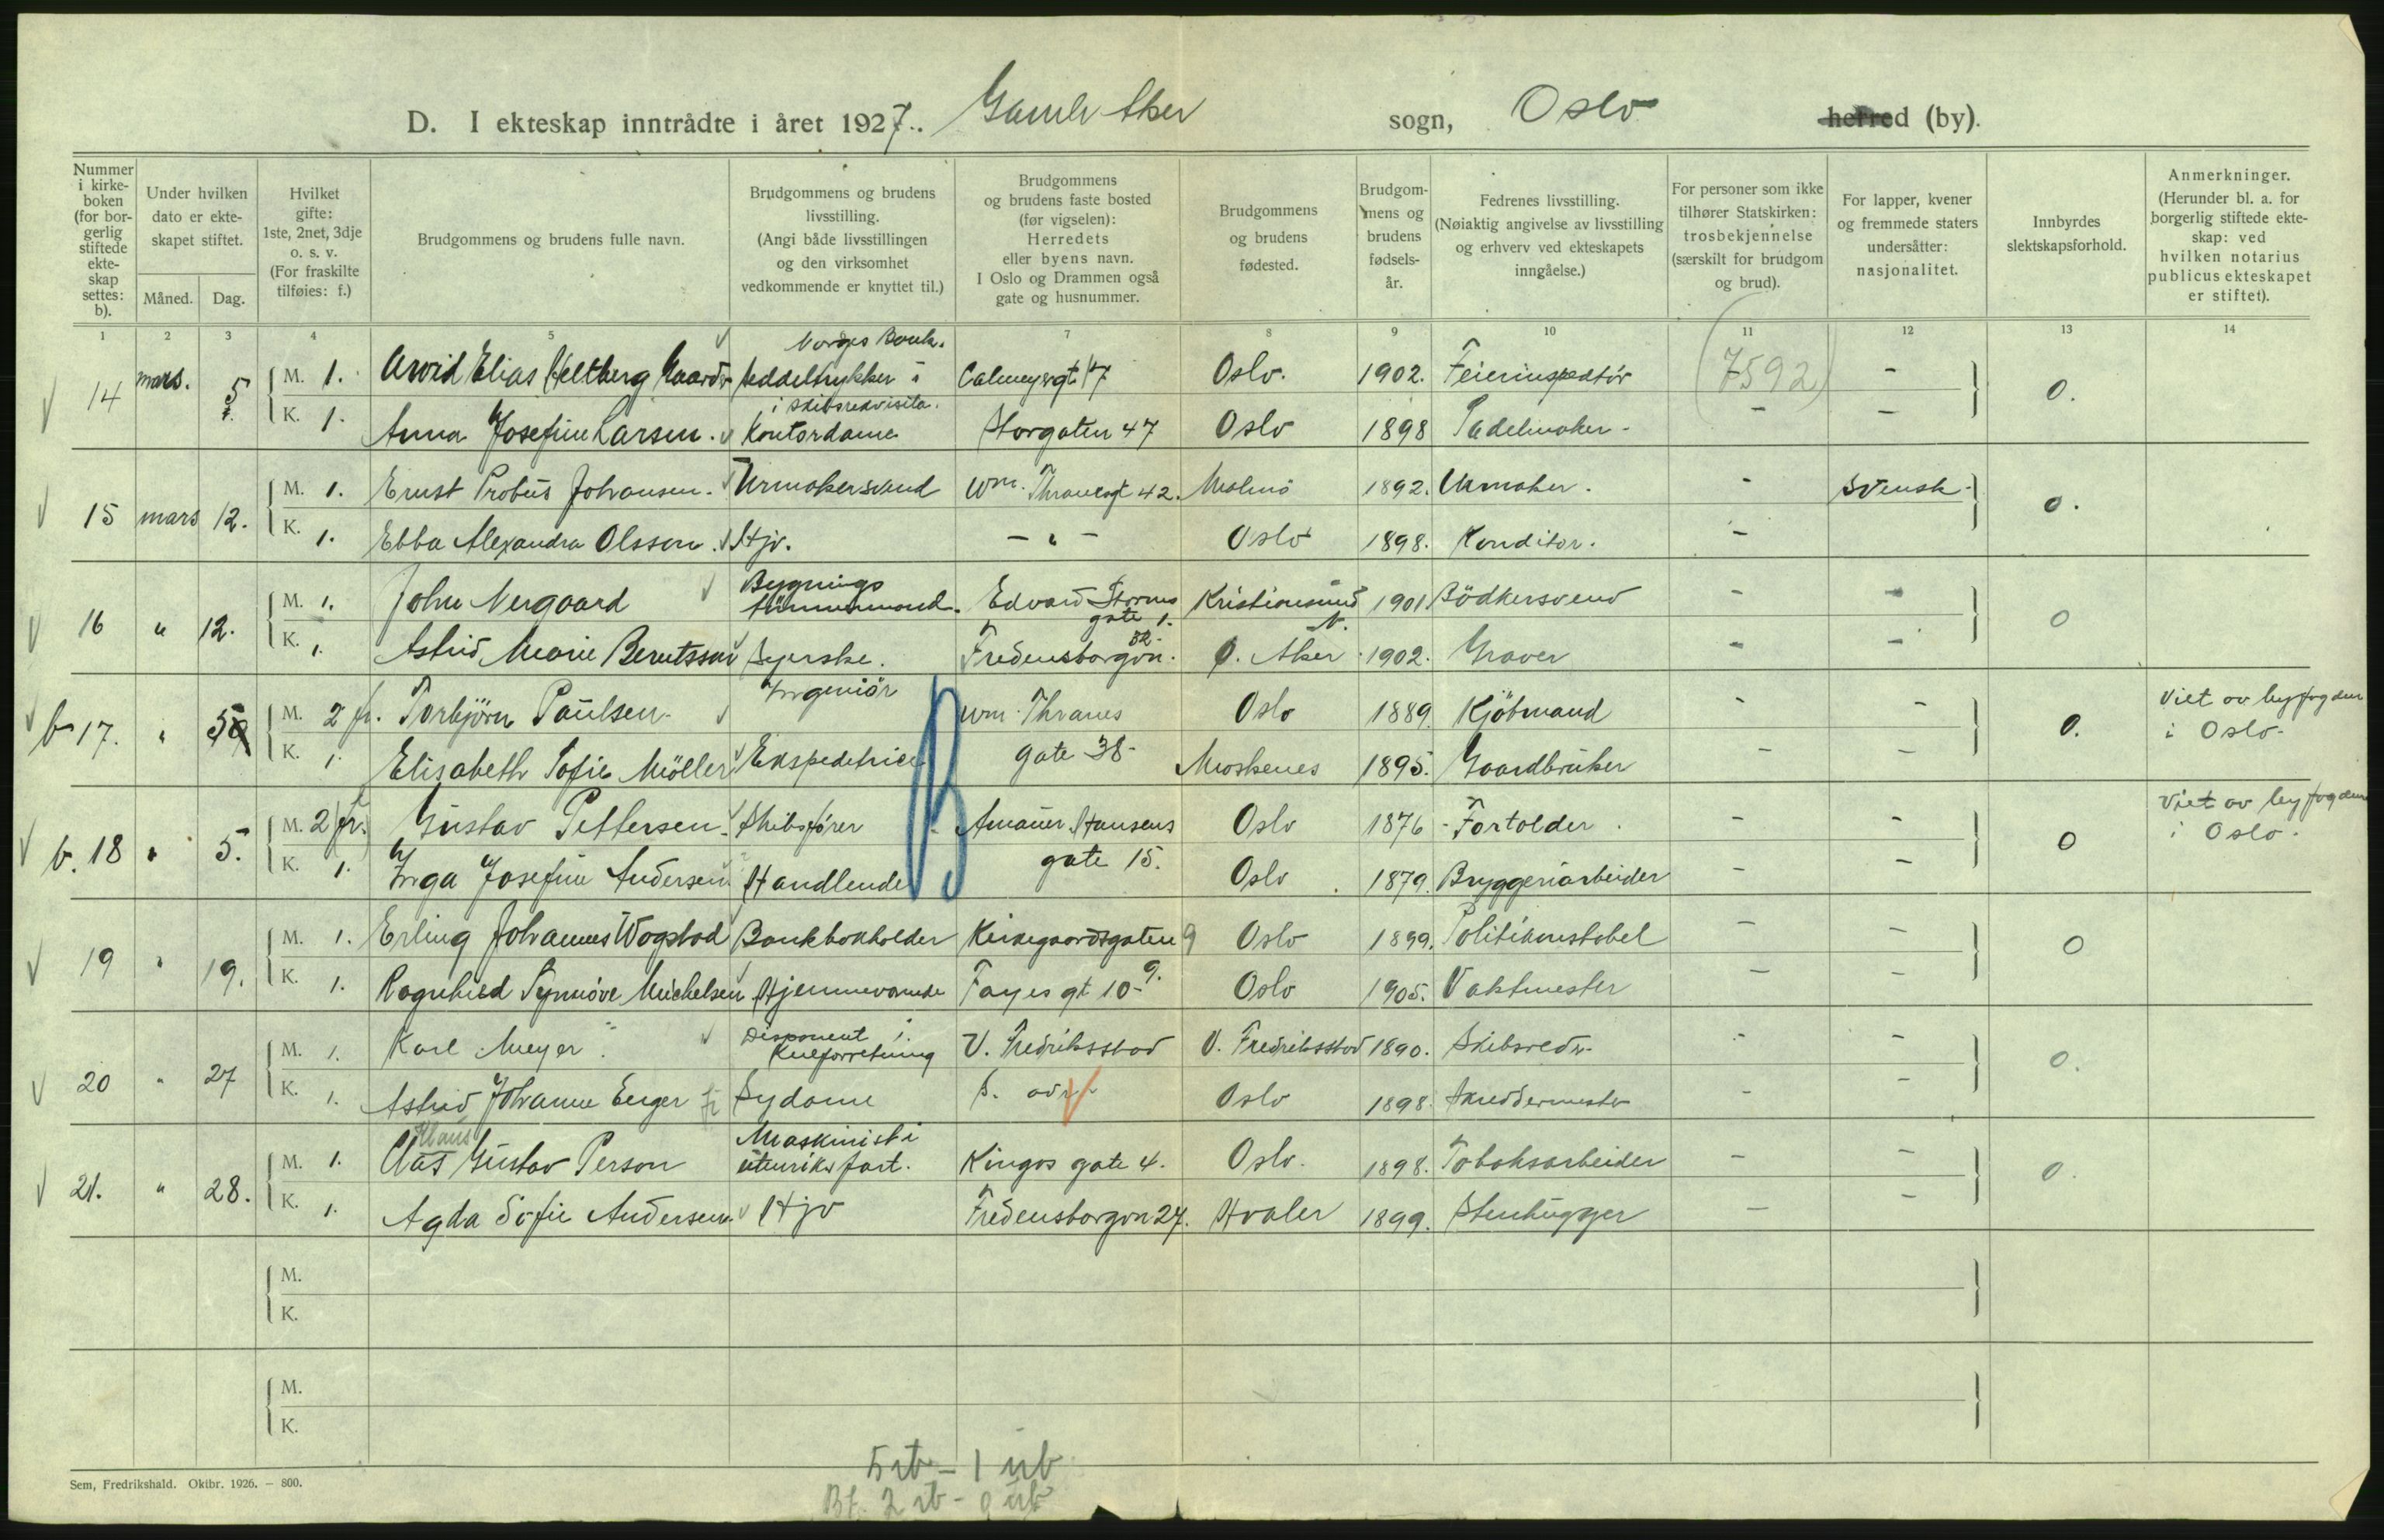 D. I ekteskap inntrådte i året 1927. Gamle Aker sogn, Oslo herred (by).
Nummer i kirkeboken (for borgerlig stiftede ekteskap settes: b).
Under hvilken dato er ekteskapet stiftet.
Måned. Dag.
Hvilket gifte: 1ste, 2net, 3dje o. s. v. (For fraskilte tilføies: f.)
Brudgommens og brudens fulle navn.
Brudgommens og brudens livsstilling. (Angi både livsstillingen og den virksomhet vedkommende er knyttet til.)
Brudgommens og brudens faste bosted (før vigselen): Herredets eller byens navn. I Oslo og Drammen også gate og husnummer.
Brudgommens og brudens fødested.
Brudgommens og brudens fødselsår.
Fedrenes livsstilling. (Nøiaktig angivelse av livsstilling og erhverv ved ekteskapets inngåelse.)
For personer som ikke tilhører Statskirken: trosbekjennelse (særskilt for brudgom og brud).
For lapper, kvener og fremmede staters undersåtter: nasjonalitet.
Innbyrdes slektskapsforhold.
Anmerkninger. (Herunder bl. a. for borgerlig stiftede ekteskap: ved hvilken notarius publicus ekteskapet er stiftet).
1 2 3 4 5 7 8 9 10 11 12 13 14
14 mars. 5 M. 1. Arvid Elias Heltberg Seddeltrykker i Norges Bank. Calmeyergt. 17 Oslo. 1902. Feierinspektör (7592) - 0.
K. 1. Anna Josefine Larsen. Kontordame i skibsrekvisita. Storgaten 47 Oslo 1898 Sadelmaker - - -
15 mars 12. M. 1. Ernst Probus Johansen. Urmakersvend Wm. Thranesgt 42. Malmö 1892. Urmaker. - Svensk. 0.
K. 1. Ebba Alexandra Olsson. Hjv. - " - Oslo 1898. Konditor. -
16 " 12. M. 1. John Nergaard Bygningstömmermand. Edvard Storms gate 1. Kristiansund N. 1901 Bödkersvend - - 0
K. 1. Astrid Marie Berntssen Syerske. Fredensborgvn. 32. Ø. Aker 1902. Graver - -
b 17. " 5 M. 2 fr. Torbjörn Paulsen. Ingeniör Wm. Thranes Oslo 1889. Kjöbmand - - 0. Viet av byfogden
K. 1. Elisabeth Sofie Möller Ekspeditrice gate 38 - Moskenes 1895. Gaardbruker - - i Oslo.
B
b. 18 " 5. M. 2 fr. Gustav Pettersen. Skibsfører Amauer Hansens Oslo 1876 Fortolder - - 0 Viet av byfogden
K. 1. Inga Josefine Andersen Handlende gate 15. Oslo 1879. Bryggeriarbeider - - i Oslo.
19 " 19. M. 1. Erling Johannes Wogstad Bankbokholder Kirkegaardsgaten 9 Oslo 1899. Politikonstabel - - 0
K. 1. Ragnhild Synnöve Michelsen Hjemmeværende Fayes gt 10 - 9. Oslo 1905. Vaktmester - -
20 " 27 M. 1. Karl Meyer. Disponent i Kulforretning V. Fredriksstad V. Fredriksstad 1890. Skibsreder - - 0.
K. 1. Astrid Johanne Enger Sydame S. adr. Oslo 1898. Skreddermester - -
21. " 28. M. 1. Claus Klaus Gustav Person Maskinist i utenriksfart. Kingos gate 4. Oslo. 1898. Tobaksarbeider - - 0.
K. 1. Agda Sofie Andersen. Hjv Fredensborgvn 27. Hvaler 1899. Stenhugger - -
M.
K.
M.
K.
Sem, Fredrikshald. Oktbr. 1926. — 800.
5 ub - 1 ub
Bf. 2 ub - 0 ub